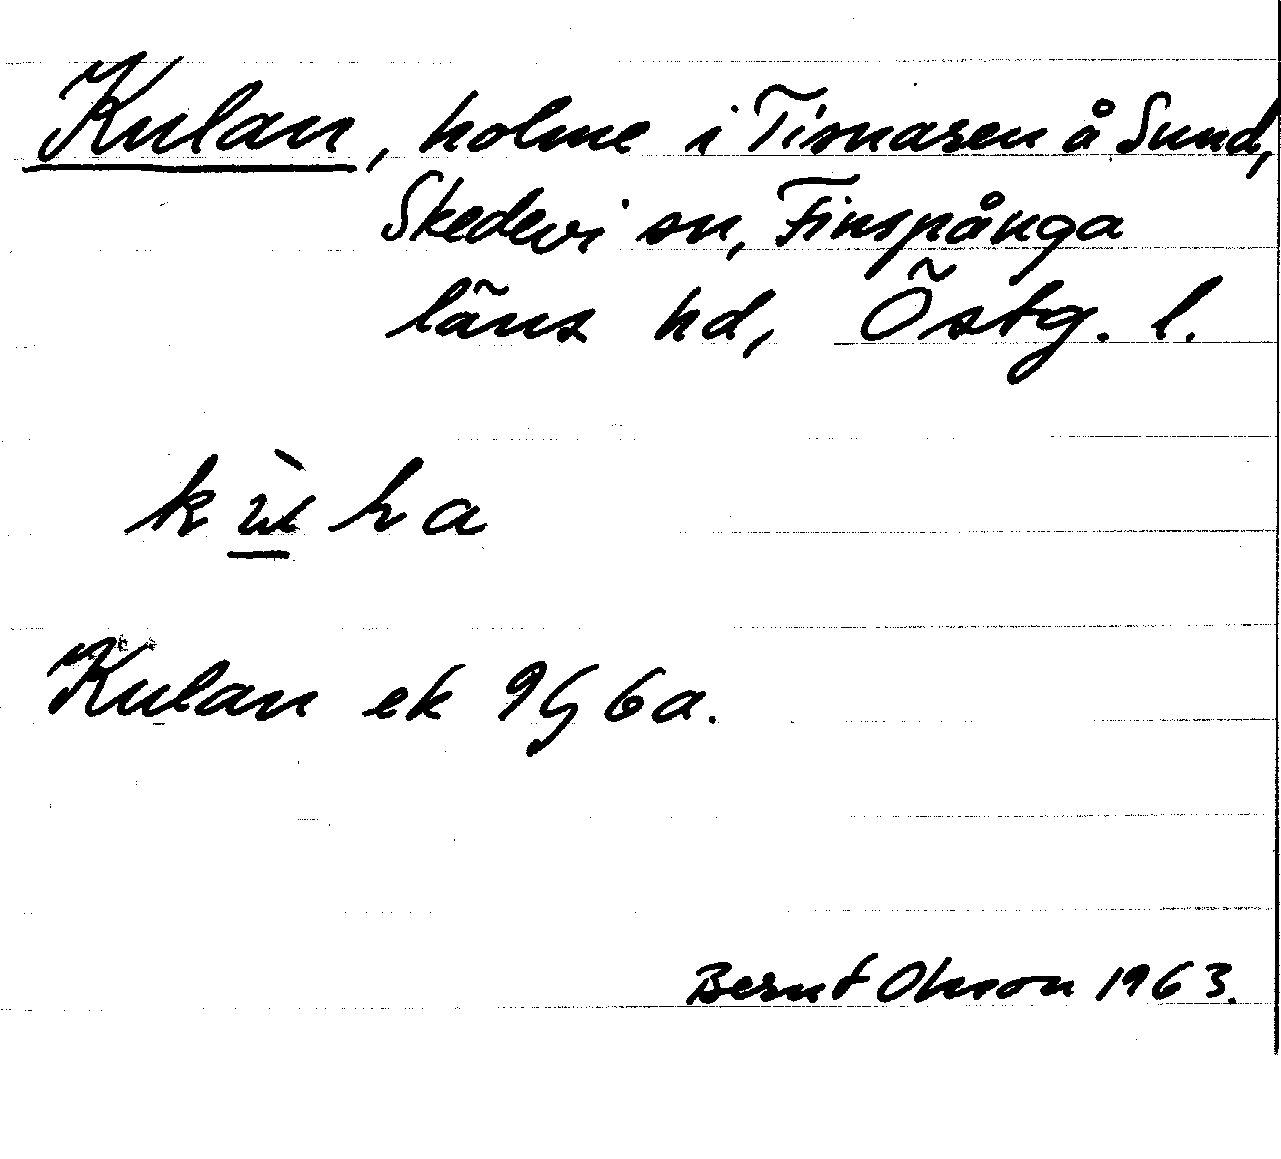 Kulan, holme i Tisnaren å Sund,
Skedevi sn, Finspånga
läns hd, Östg. l.
Kulan ek 9G 6a.
Bernt Olsson 1963.